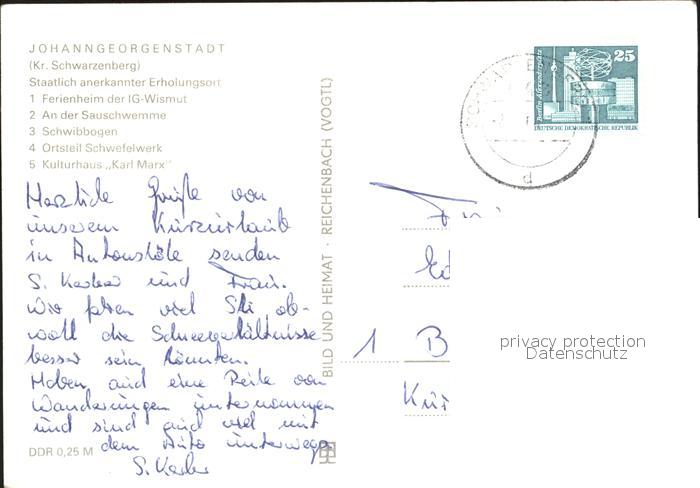 JOHANNGEORGENSTADT
(Kr. Schwarzenberg)
Staatlich anerkannter Erholungsort
1 Ferienheim der IG-Wismut
2 An der Sauschwemme
3 Schwibbogen
4 Ortsteil Schwefelwerk
5 Kulturhaus „Karl Marx"
Herzliche Grüße von
unserem Kurzurlaub
in senden
S. und Frau.
Wir fahren viel Ski ob-
wohl die Schneeverhältnisse
besser sein könnten.
Haben auch eine Reihe von
Wanderungen unternommen
und sind auch viel mit
dem Auto unterwegs.
S.
DDR 0,25 M
BILD UND HEIMAT · REICHENBACH (VOGTL)
25
Berlin, Alexanderplatz
DEUTSCHE DEMOKRATISCHE REPUBLIK
d
1 B
Kür
privacy protection
Datenschutz